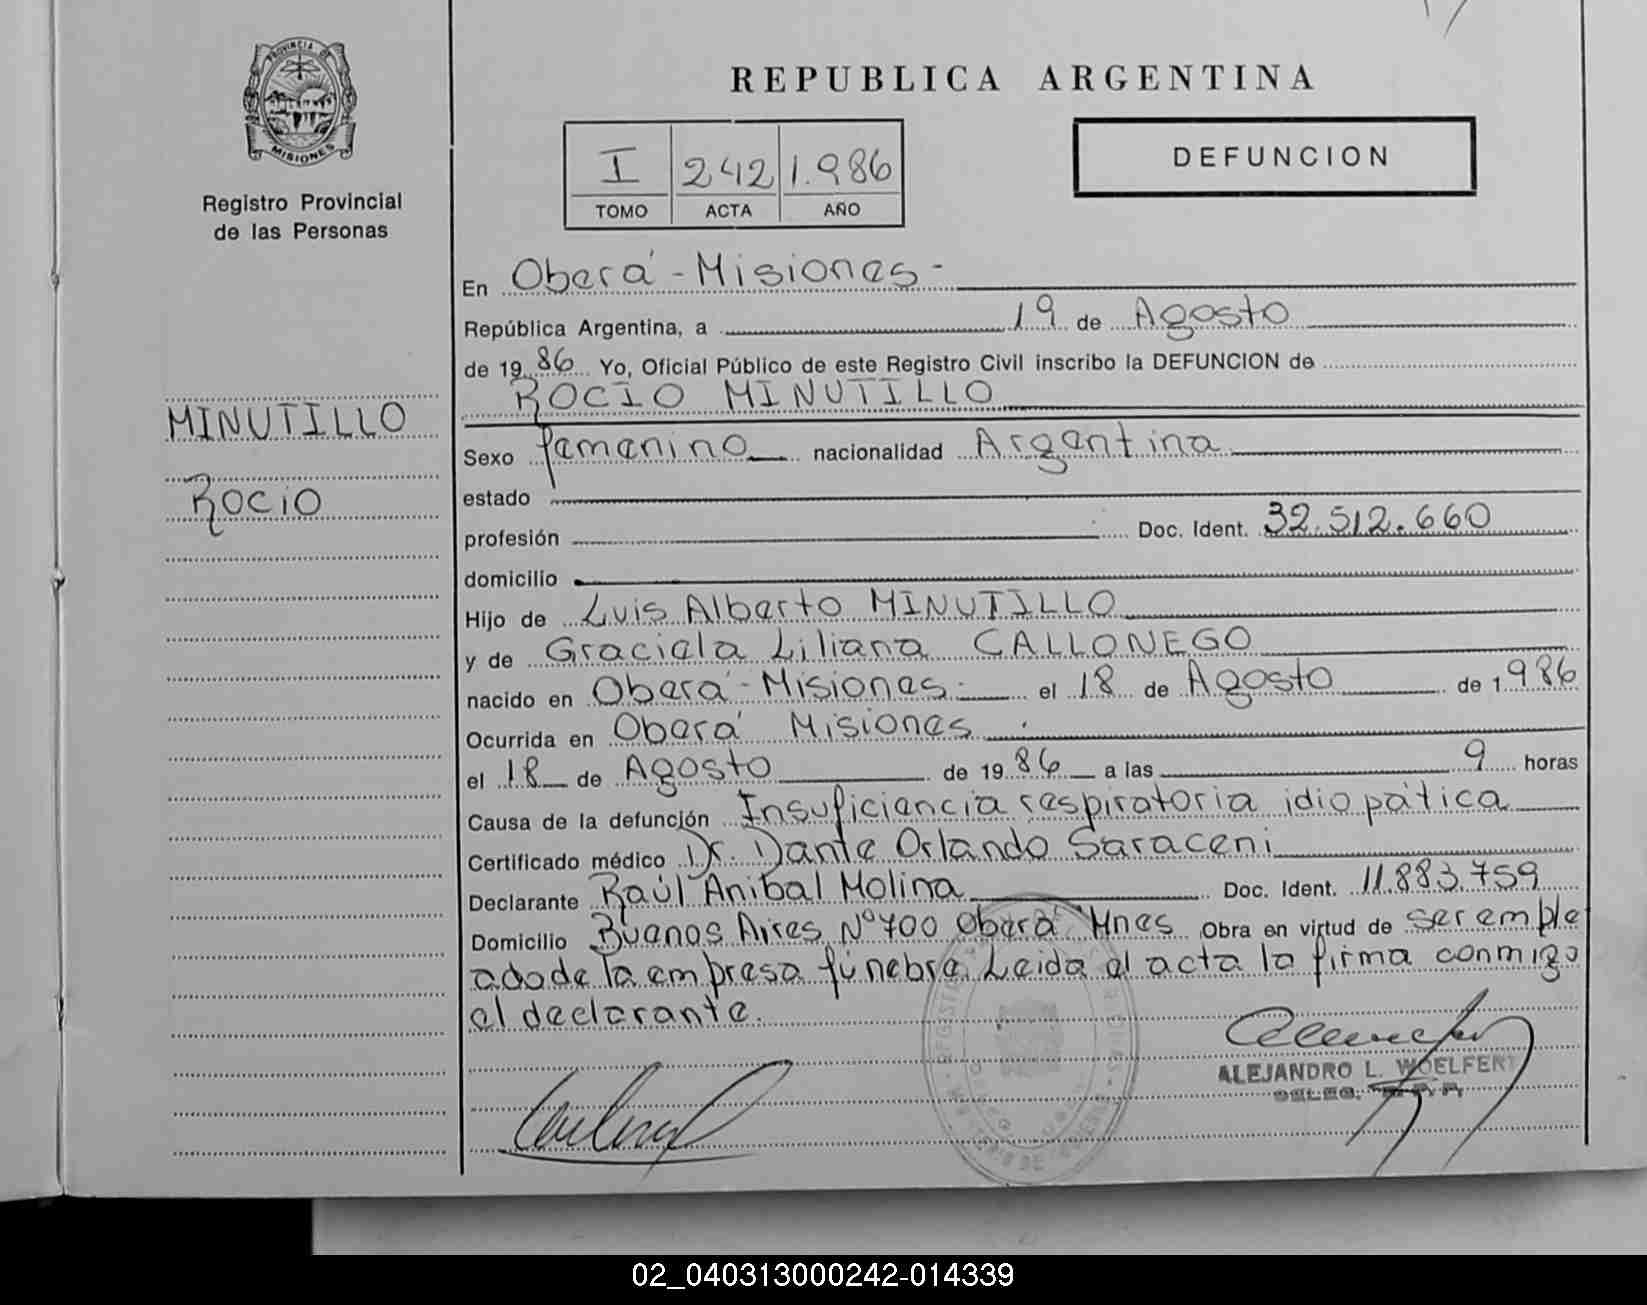 PROVINCIA DE
MISIONES
Registro Provincial
de las Personas
MINUTILLO
Rocio
REPUBLICA ARGENTINA
I 242 1.986
TOMO ACTA AÑO
DEFUNCION
En Oberá - Misiones -
República Argentina, a 19 de Agosto
de 19 86 Yo, Oficial Público de este Registro Civil inscribo la DEFUNCION de
ROCIO MINUTILLO
Sexo femenino nacionalidad Argentina
estado
profesión Doc. Ident. 32.512.660
domicilio
Hijo de Luis Alberto MINUTILLO
y de Graciela Liliana CALLONEGO
nacido en Oberá - Misiones - el 18 de Agosto de 1986
Ocurrida en Oberá Misiones
el 18 de Agosto de 19 86 a las 9 horas
Causa de la defunción Insuficiencia respiratoria idiopática
Certificado médico Dr. Dante Orlando Saraceni
Declarante Raúl Anibal Molina Doc. Ident. 11.883.759
Domicilio Buenos Aires Nº 700 Oberá Mnes Obra en virtud de ser emple
ado de la empresa fúnebre. Leida el acta la firma conmigo
el declarante.
ALEJANDRO L. WOELFERT
02_040313000242-014339